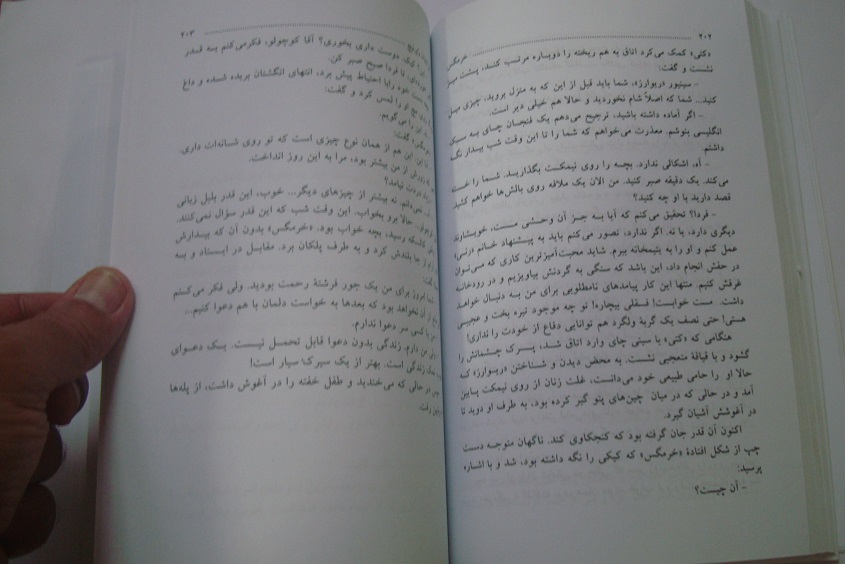 ۲۰۲ خرمگس
«کتی» کمک می‌کرد اتاق به هم ریخته را دوباره مرتب کند، پشت میز
نشست و گفت:
– سینیور «ریوارز»، شما باید قبل از این که به منزل بروید، چیزی میل
کنید... شما که اصلاً شام نخوردید و حالا هم خیلی دیر است.
– اگر آماده داشته باشید، ترجیح می‌دهم یک فنجان چای به سبک
انگلیسی بنوشم. معذرت می‌خواهم که شما را تا این وقت شب بیدار نگه
داشتم.
– آه، اشکالی ندارد. بچه را روی نیمکت بگذارید. شما را خسته
می‌کند. یک دقیقه صبر کنید. من الان یک ملافه روی بالش‌ها خواهم کشید.
قصد دارید با او چه کنید؟
– فردا؟ تحقیق می‌کنم که آیا به جز آن وحشی مست، خویشاوند
دیگری دارد، یا نه. اگر ندارد، تصور می‌کنم باید به پیشنهاد خانم «رنی»
عمل کنم و او را به یتیمخانه ببرم. شاید محبت‌آمیزترین کاری که می‌توان
در حقش انجام داد، این باشد که سنگی به گردنش بیاویزیم و در رودخانه
غرقش کنیم. منتها این کار پیامدهای نامطلوبی برای من به دنبال خواهد
داشت. مست خوابست! فسقلی بیچاره! تو چه موجود تیره بخت و عجیبی
هستی! حتی نصف یک گربهٔ ولگرد هم توانایی دفاع از خودت را نداری!
هنگامی که «کتی» با سینی چای وارد اتاق شد، پسرک چشمانش را
گشود و با قیافهٔ متعجبی نشست. به محض دیدن و شناختن «ریوارز» که
حالا او را حامی طبیعی خود می‌دانست، غلت زنان از روی نیمکت پایین
آمد و در حالی که در میان چین‌های پتو گیر کرده بود، به طرف او دوید تا
در آغوشش آشیان گیرد.
اکنون آن قدر جان گرفته بود که کنجکاوی کند. ناگهان متوجه دست
چپ از شکل افتادهٔ «خرمگس» که کیکی را نگه داشته بود، شد و با اشاره
پرسید:
– آن چیست؟
۲۰۳
کیک. دوست داری بخوری؟ آقا کوچولو، فکر می‌کنم به قدر
تا فردا صبح صبر کن.
دست خود را با احتیاط پیش برد، انتهای انگشتان بریده شده و داغ
مچ او را لمس کرد و گفت:
این را می‌گویم.
گفت:
این هم از همان نوع چیزی است که تو روی شانه‌ات داری.
از من بیشتر بود، مرا به این روز انداخت.
دردت نیامد؟
نمی‌دانم. نه بیشتر از چیزهای دیگر... خوب، این قدر بلبل زبانی
حالا برو بخواب. این وقت شب که این قدر سؤال نمی‌کنند.
رسید، بچه خواب بود. «خرمگس» بدون آن که بیدارش
از جا بلندش کرد و به طرف پلکان برد. مقابل در ایستاد و به
گفت:
امروز برای من یک جور فرشتهٔ رحمت بودید. ولی فکر می‌کنم
از آن نخواهد بود که بعدها به خواست دلمان با هم دعوا کنیم...
با کسی سر دعوا ندارم.
ولی من دارم. زندگی بدون دعوا قابل تحمل نیست. یک دعوای
نمک زندگی است. بهتر از یک سیرک سیار است!
در حالی که می‌خندید و طفل خفته را در آغوش داشت، از پله‌ها
پایین رفت.